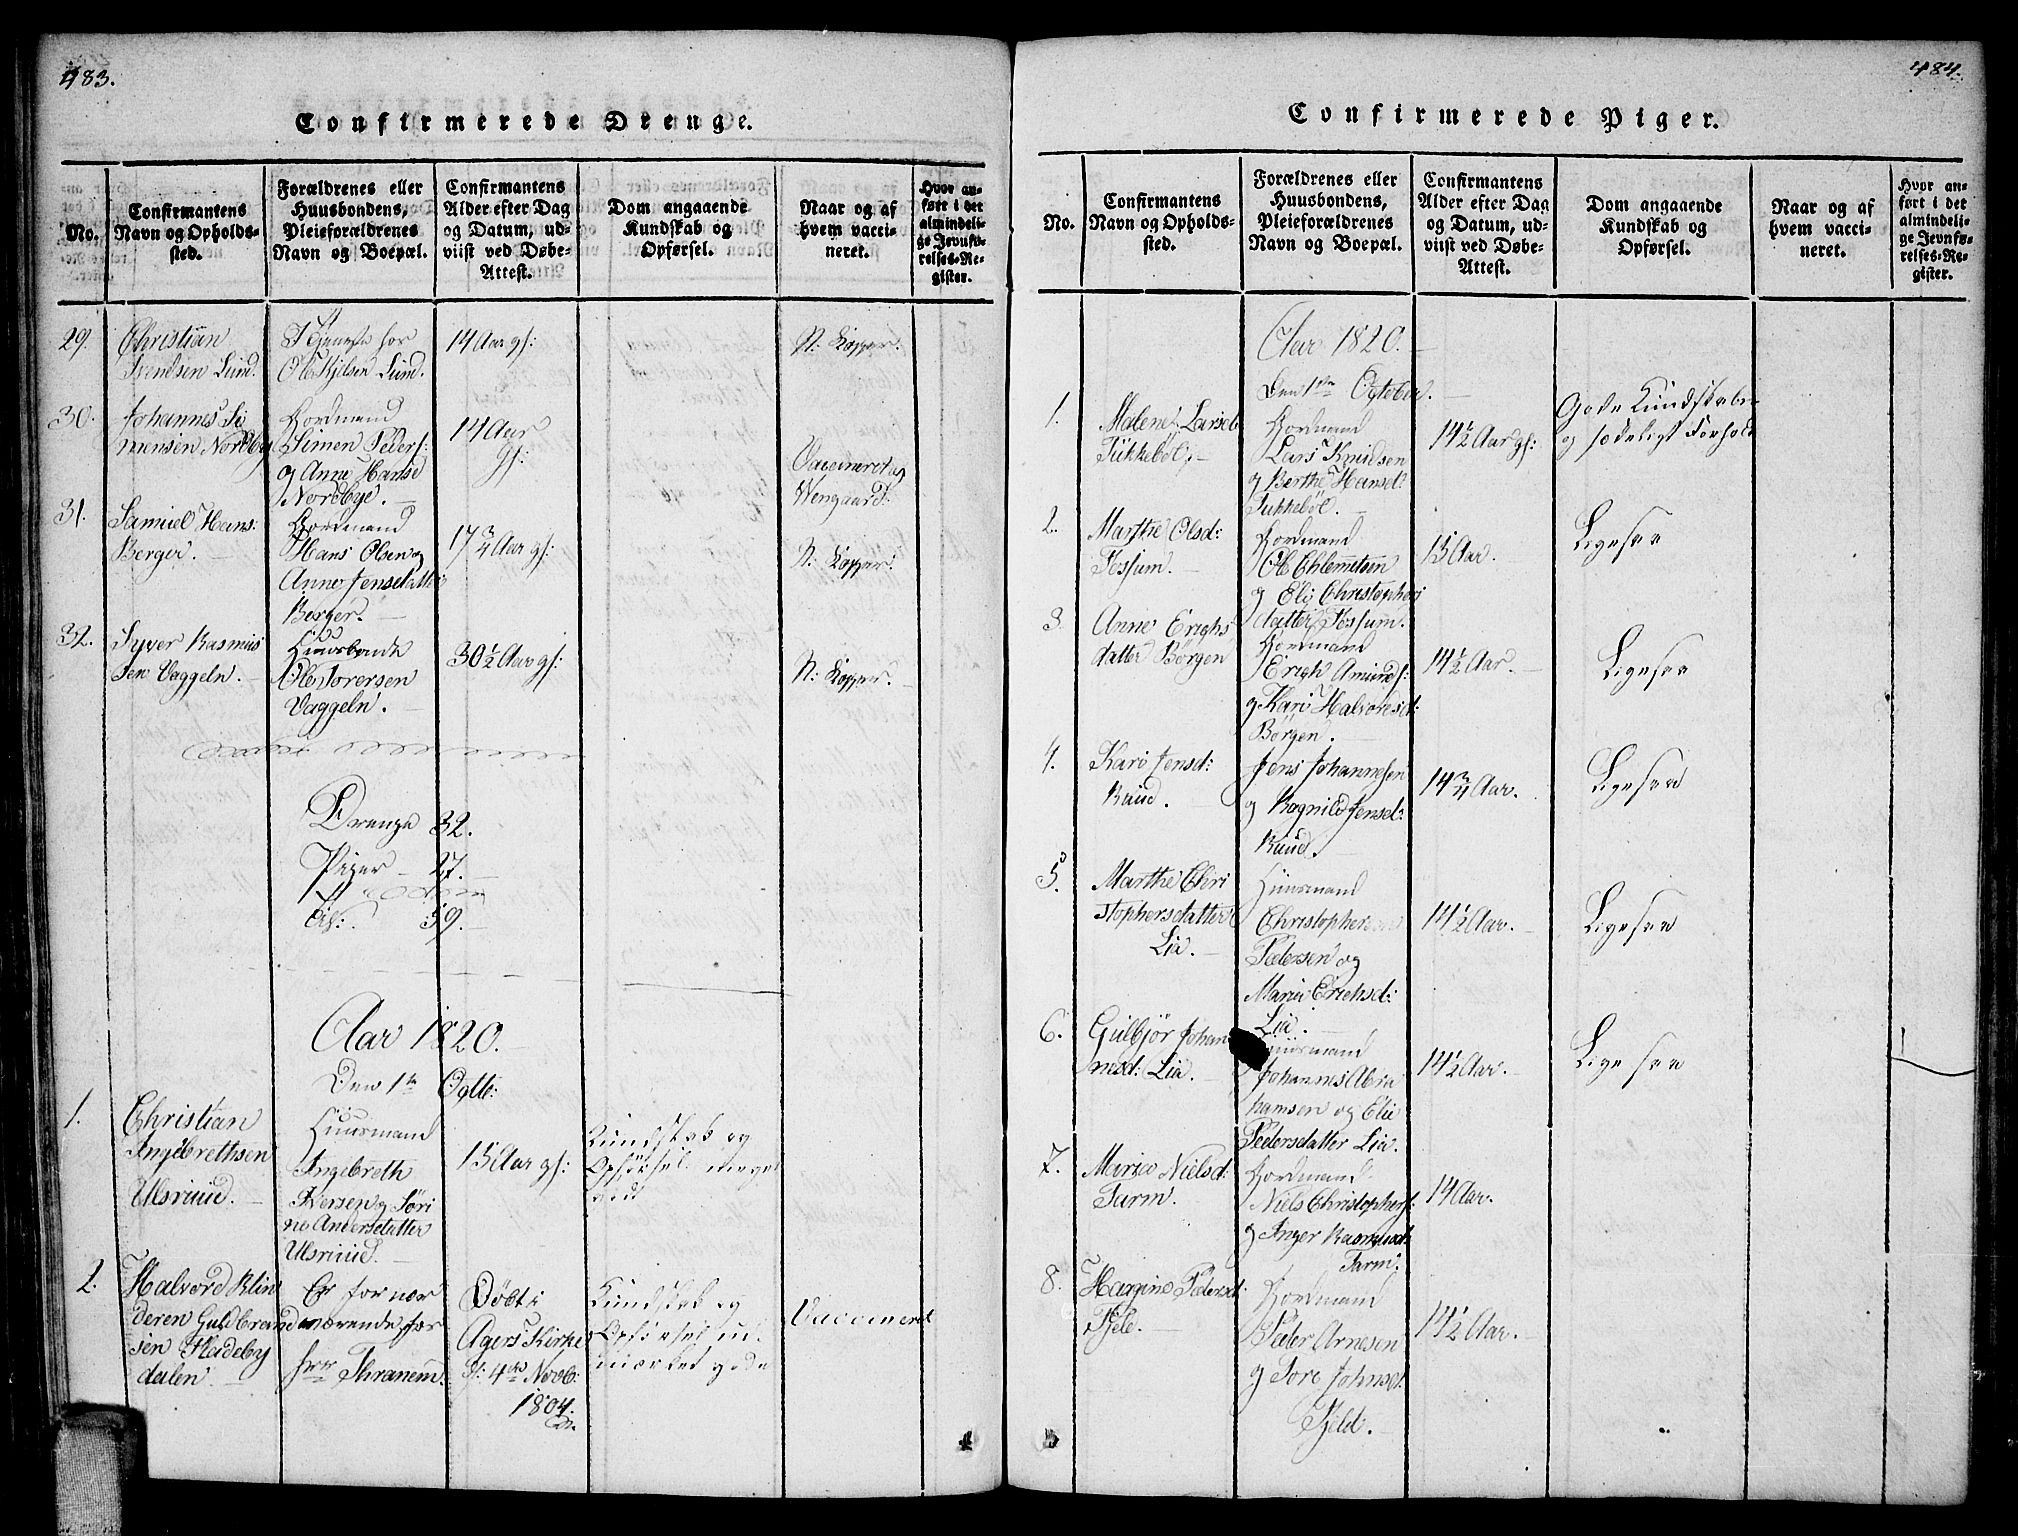 483.
Confirmerede Drenge.
No.
Confirmantens
Navn og Opholds-
sted.
Forældrenes eller
Huusbondens,
Pleieforældrenes
Navn og Boepæl.
Confirmantens
Alder efter Dag
og Datum, ud-
viist ved Døbe-
Attest.
Dom angaaende
Kundskab og
Opførsel.
Naar og af
hvem vacci-
neret.
Hvor an-
ført i det
almindeli-
ge Jevnfø-
relses-Re-
gister.
29.
Christian
Svendsen Lund.
Tjeneste hos
Ole Kjelsen Lund.
14 Aar gl:
N: Kopper.
30.
Johannes Si
mensen Nordbye
Gordmand
Simen Peders:
og Anne Hansd
Nordbye.
14 Aar
gl:
Vaccineret og
Wengaard:
31.
Samuel Hans:
Berger.
Gordmand
Hans Olsen og
Anne Jensdatter
Berger.
17 3/4 Aar gl:
N: Kopper.
32.
Syver Rasmus
sen Vaggeln.
Huusbonde
Ole Torersen
Vaggeln.
30 1/2 Aar gl:
N: Kopper.
Drenge 32.
Piger - 27.
59.
Aar 1820.
Den 1te Octb:
1.
Christian
Ingebrethsen
Ulsruud.
Huusmand
Ingebreth
Iversen og Søri
ne Andersdatter
Ulsruud.
15 Aar gl:
Kundskab og
Opførsel meget
godt
2.
Halvord Klin
deren Guldbrand
sen Heideby
dalen.
Er for nær
værende hos
hrr Thranem.
Døbt i
Agers Kirke
gl: 4de Novb:
1804.
Kundskab og
Opførsel ud-
mærket gode
Vaccineret
484.
Confirmerede Piger.
No.
Confirmantens
Navn og Opholds-
sted.
Forældrenes eller
Huusbondens,
Pleieforældrenes
Navn og Boepæl.
Confirmantens
Alder efter Dag
og Datum, ud-
viist ved Døbe-
Attest.
Dom angaaende
Kundskab og
Opførsel.
Naar og af
hvem vacci-
neret.
Hvor an-
ført i det
almindeli-
ge Jevnfø-
relses-Re-
gister.
Aar 1820.
Den 1ste October.
1.
Malene Larsd
Tukkebøl.
Gordmand
Lars Knudsen
og Berthe Hansd:
Tukkebøl.
14 1/2 Aar gl:
Gode Kundskaber
og sædeligt Forhold
2.
Marthe Olsd:
Fossum.
Gordmand
Ole Ehlemetsen
og Eli Christophers
datter Fossum.
15 Aar.
Ligesaa
3.
Anne Erichs
datter Børgen
Gordmand
Erich Amunds:
og Kari Halvorsd:
Børgen.
14 1/2 Aar.
Ligesaa
4.
Kari Jensd:
Ruud.
Jens Johannesen
og Ragnild Jensd:
Ruud.
14 3/4 Aar.
Ligesaa
5.
Marthe Chri
stophersdatter
Lia.
Huusmand
Christopher
Pedersen og
Maria Erichsd:
Lia.
14 1/2 Aar.
Ligesaa
6.
Gulbjør Johan
nesd: Lia.
Huusmand
Johannes Abra
hamsen og Elie
Pedersdatter Lia.
14 1/2 Aar.
Ligesaa
7.
Maria Nielsd:
Farm.
Gordmand
Niels Christophers:
og Inger Rasmusd:
Farm.
14 Aar.
8.
Hargine Pedersd:
Fjeld.
Gordmand
Peder Arnesen
og Tore Johnsd:
Fjeld.
14 1/2 Aar.